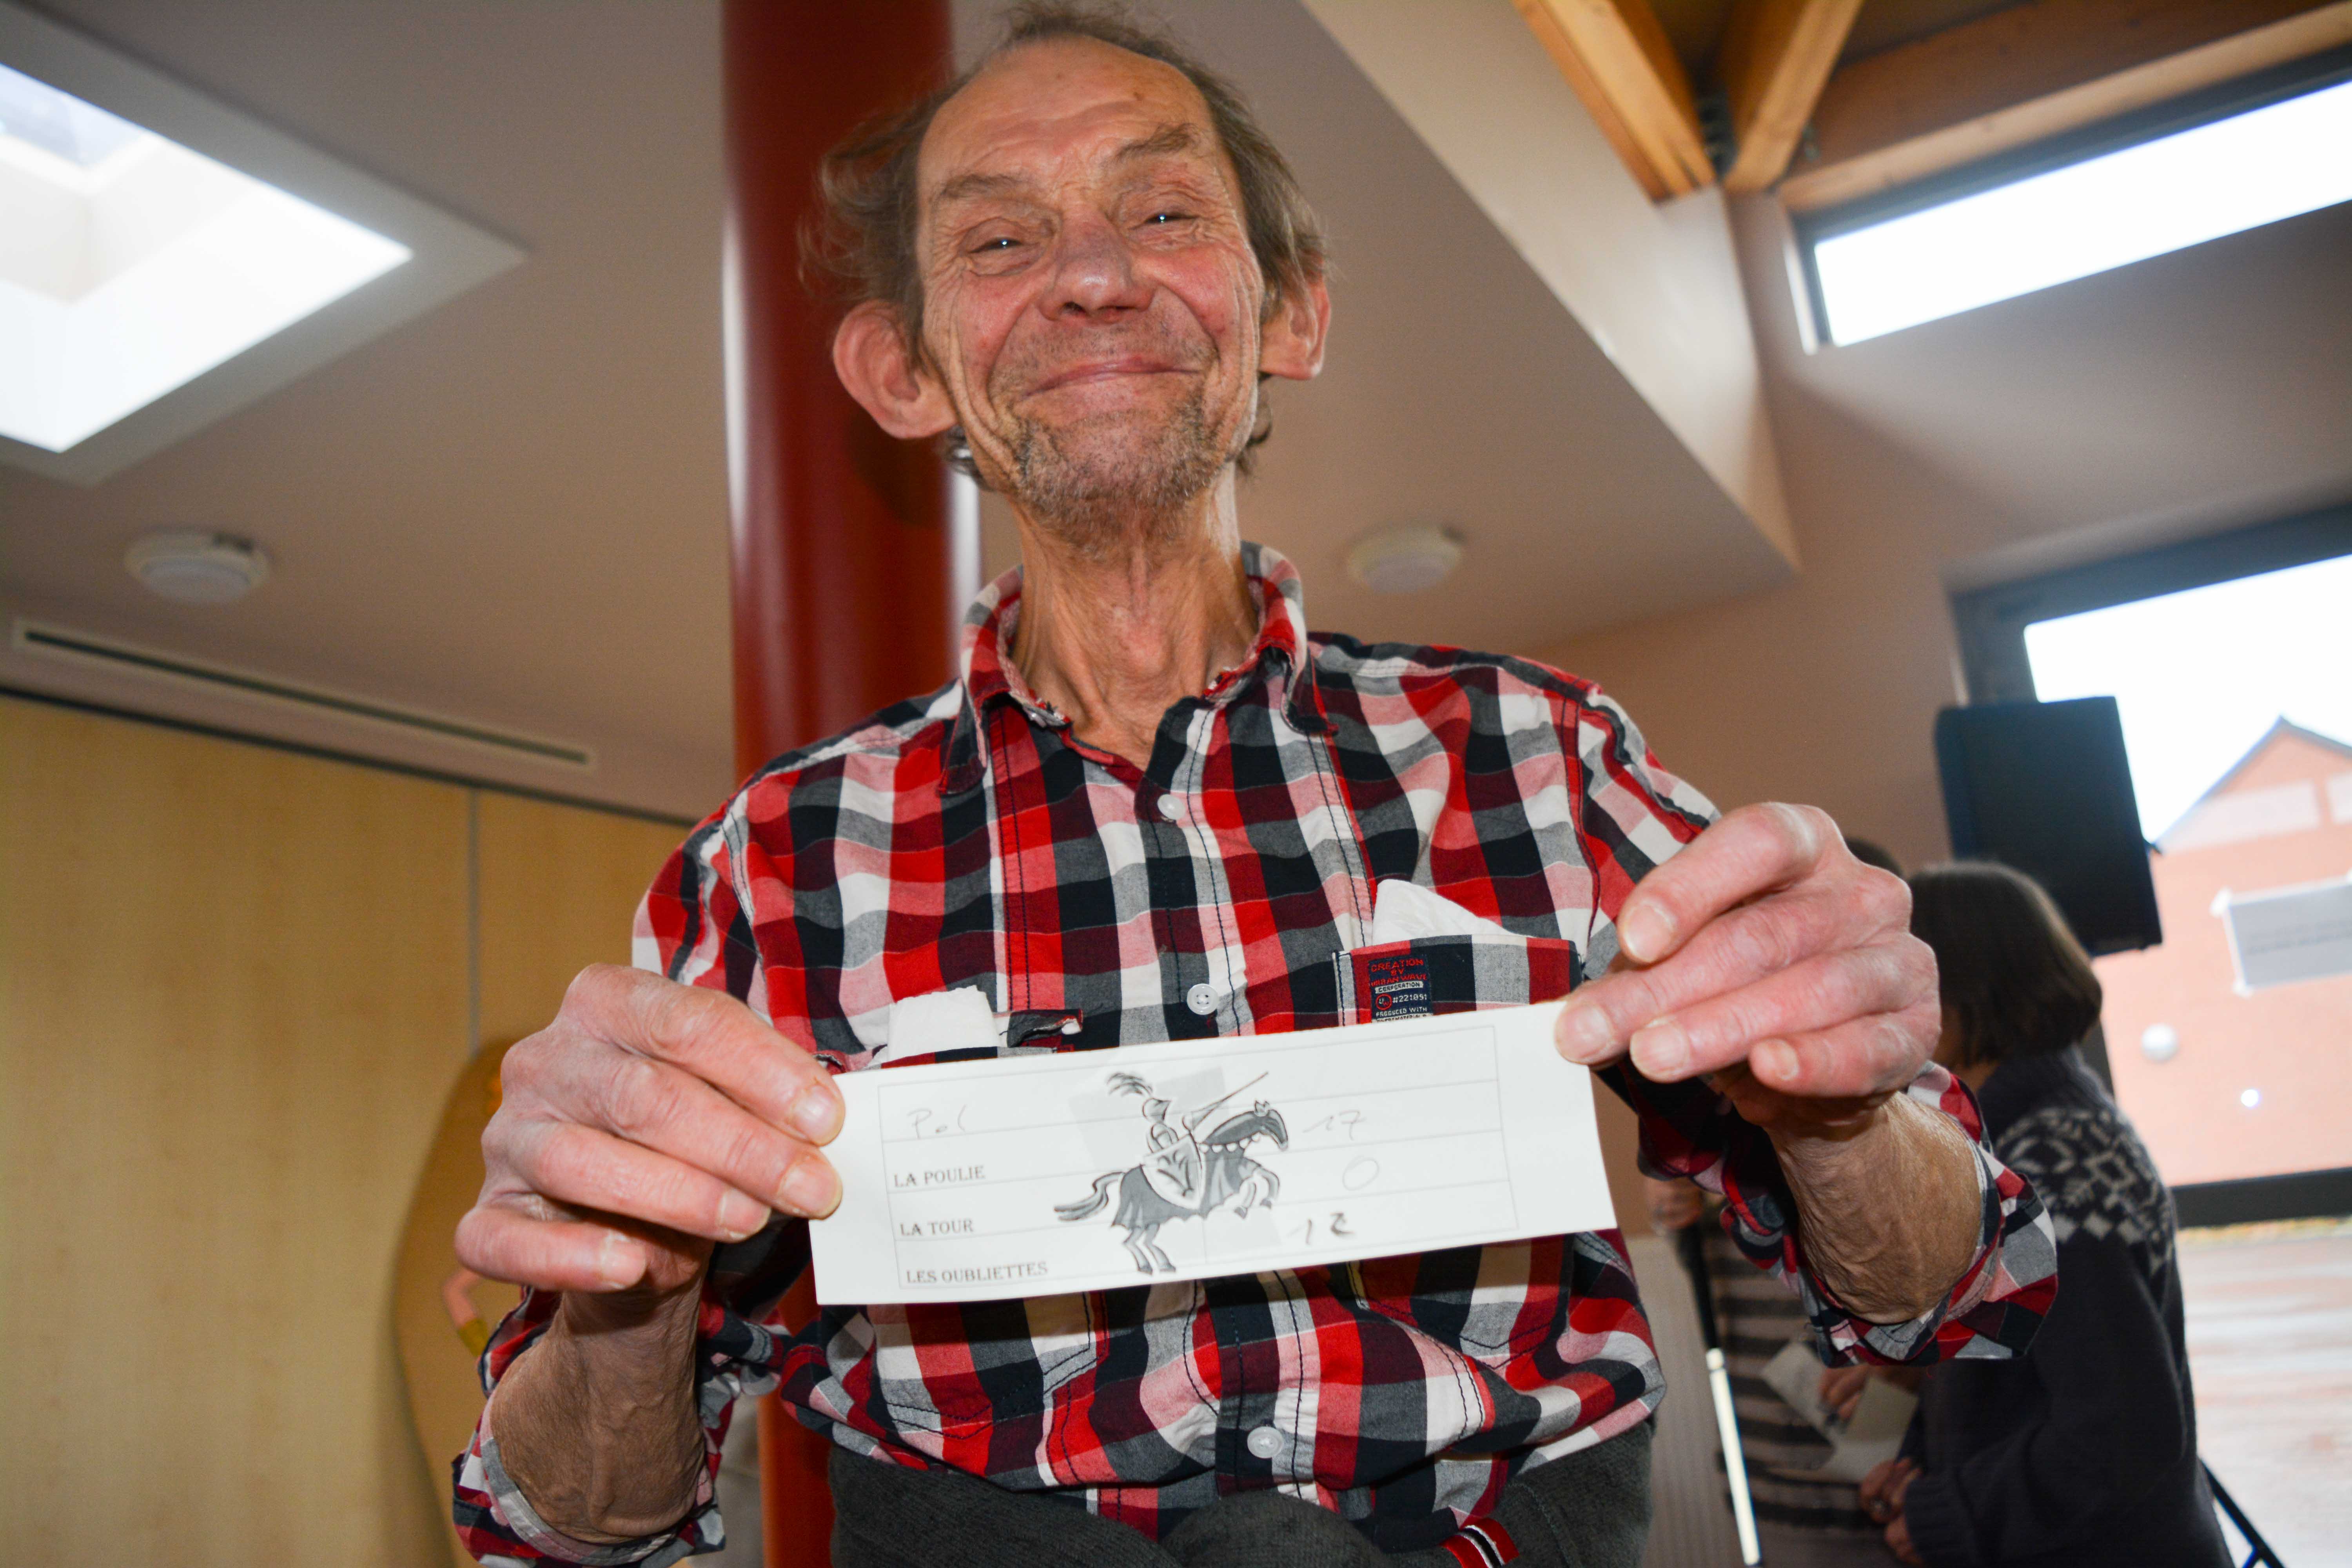 CREATION
BY
CORPORATION
#221051
PRODUCED WITH
Pol
17
LA POULIE
0
LA TOUR
12
LES OUBLIETTES